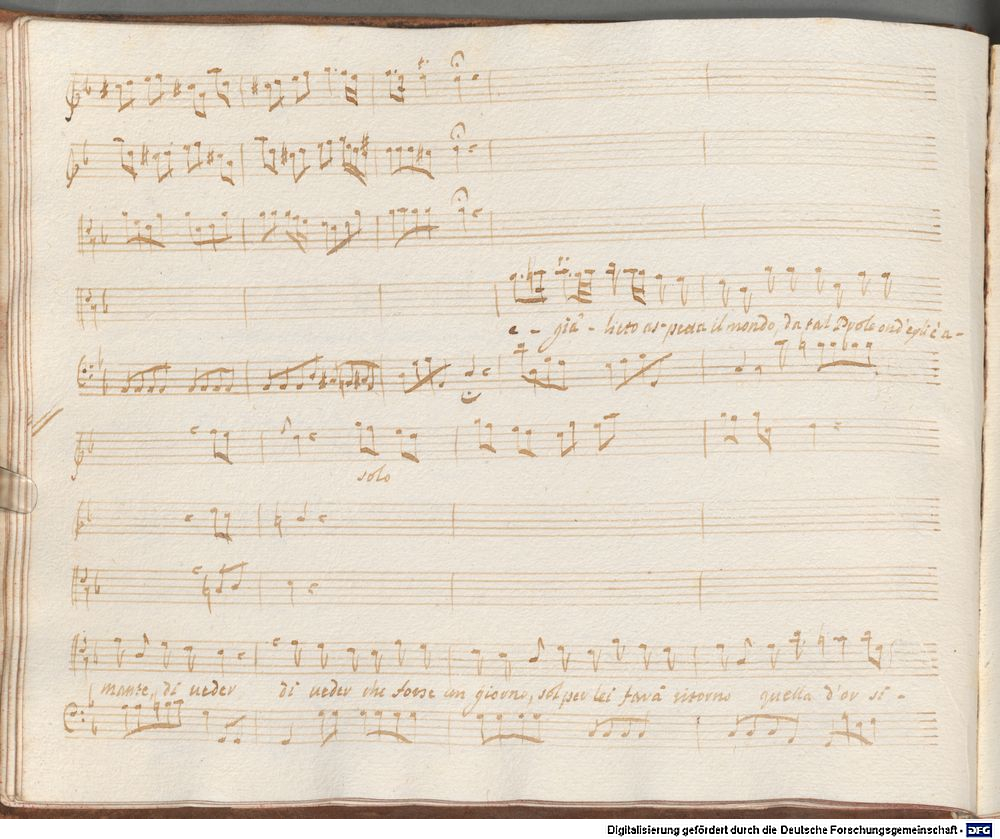 e - già - lieto as-petta il mondo, da tal Prole ond'egli è a-
solo
mante, di ueder di ueder che forse un giorno, sol per lei farà ritorno quella d'or si -
Digitalisierung gefördert durch die Deutsche Forschungsgemeinschaft - DFG